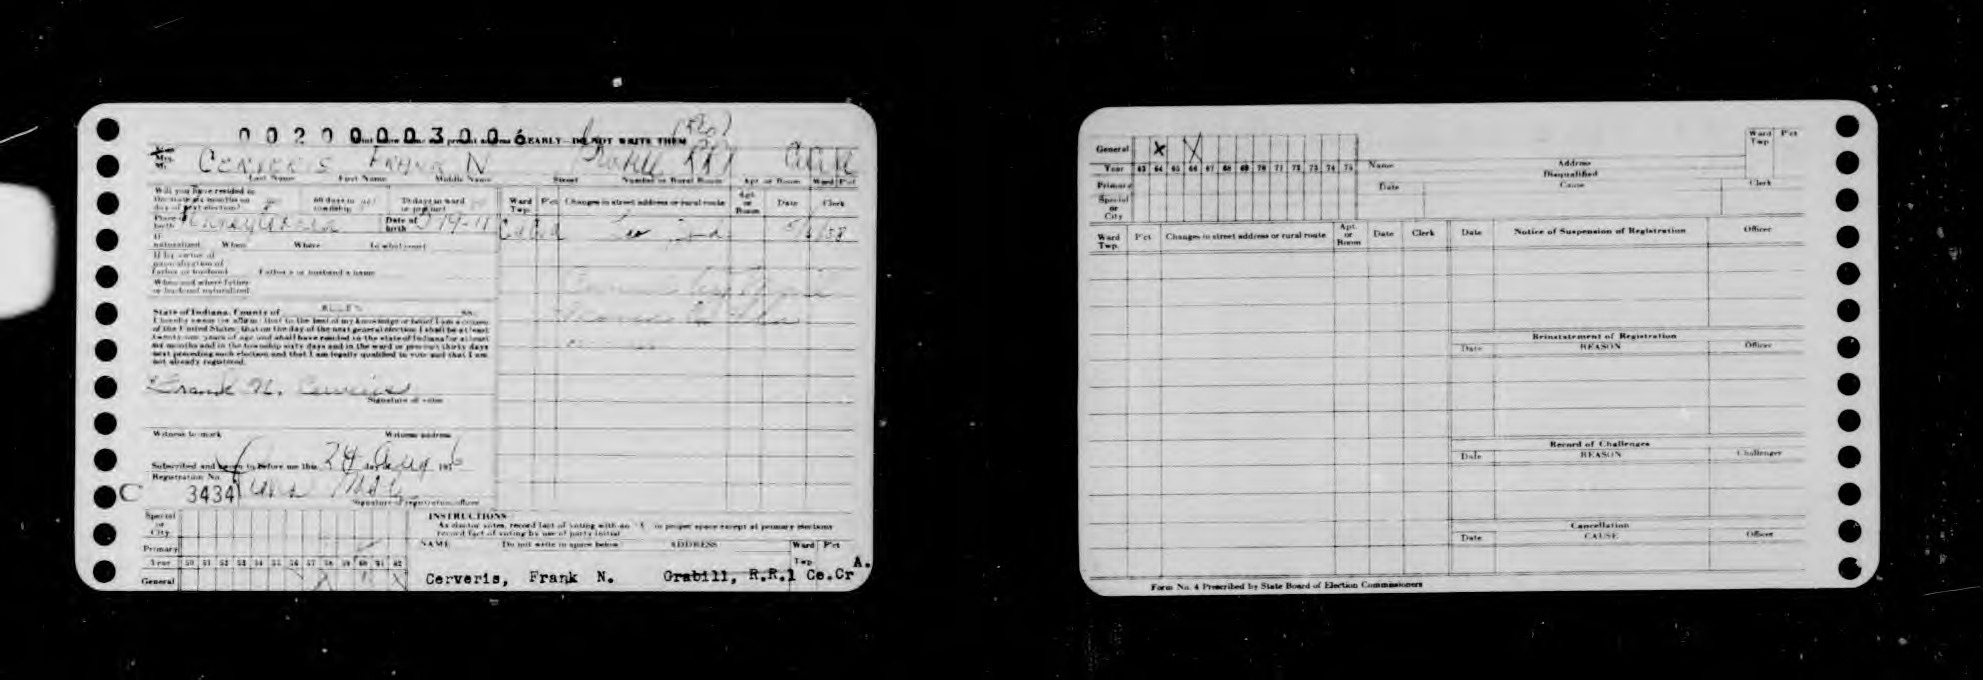 0020000300 6 EARLY DO NOT WRITE THEM
Mrs.
Cerveris Frank N Grabill RR1
Last Name First Name Middle Name Street Number or Rural Route Apt or Room Ward P'ct
Will you have resided in
the state six months on
day of next election?
60 days in
township
30 days in ward
or precinct
Place of
birth
Pennsylvania
Date of
birth
If
naturalized When Where In what court
If by virtue of
naturalization of
father or husband Father's or husband's name
When and where father
or husband naturalized
State of Indiana, County of ALLEN SS:
I hereby swear (or affirm) that to the best of my knowledge or belief I am a citizen
of the United States; that on the day of the next general election I shall be at least
twenty-one years of age and shall have resided in the state of Indiana for at least
six months and in the township sixty days and in the ward or precinct thirty days
next preceding such election and that I am legally qualified to vote and that I am
not already registered.
Frank N. Cerveris
Signature of voter
Witness to mark Witness address
Subscribed and sworn to before me this 24 day of Aug 195
Registration No.
C 3434
Signature of registration officer
Ward
Twp.
P'ct Changes in street address or rural route
Apt.
or
Room
Date Clerk
Leo Ind
Special
or
City
Primary
Year 50 51 52 53 54 55 56 57 58 59 60 61 62
General
INSTRUCTIONS
As elector votes, record fact of voting with an "X" in proper space except at primary elections
record fact of voting by use of party initial
NAME Do not write in space below ADDRESS Ward P'ct
Twp.
Cerveris, Frank N. Grabill, R.R.1 Ce.Cr A.
General X X
Year 63 64 65 66 67 68 69 70 71 72 73 74 75
Primary
Special
or
City
Name Address
Ward
Twp
P'ct
Disqualified
Date Cause Clerk
Ward
Twp.
P'ct Changes in street address or rural route
Apt.
or
Room
Date Clerk
Date Notice of Suspension of Registration Officer
Reinstatement of Registration
Date REASON Officer
Record of Challenges
Date REASON Challenger
Cancellation
Date CAUSE Officer
Form No. 4 Prescribed by State Board of Election Commissioners